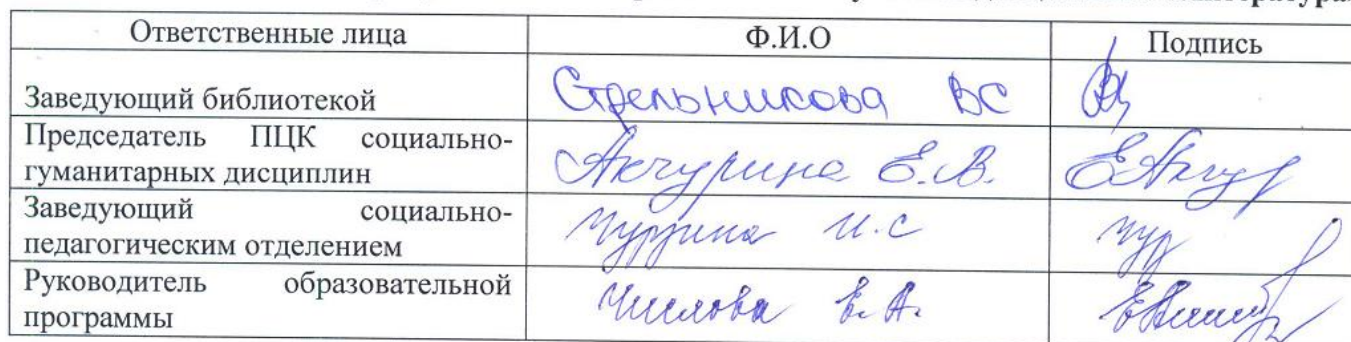 Ответственные лица Ф.И.О Подпись
Заведующий библиотекой Стрельникова ВС
Председатель ПЦК социально-
гуманитарных дисциплин Акчурина Е.В. ЕАкчур
Заведующий социально-
педагогическим отделением И.С
Руководитель образовательной
программы Е.А.